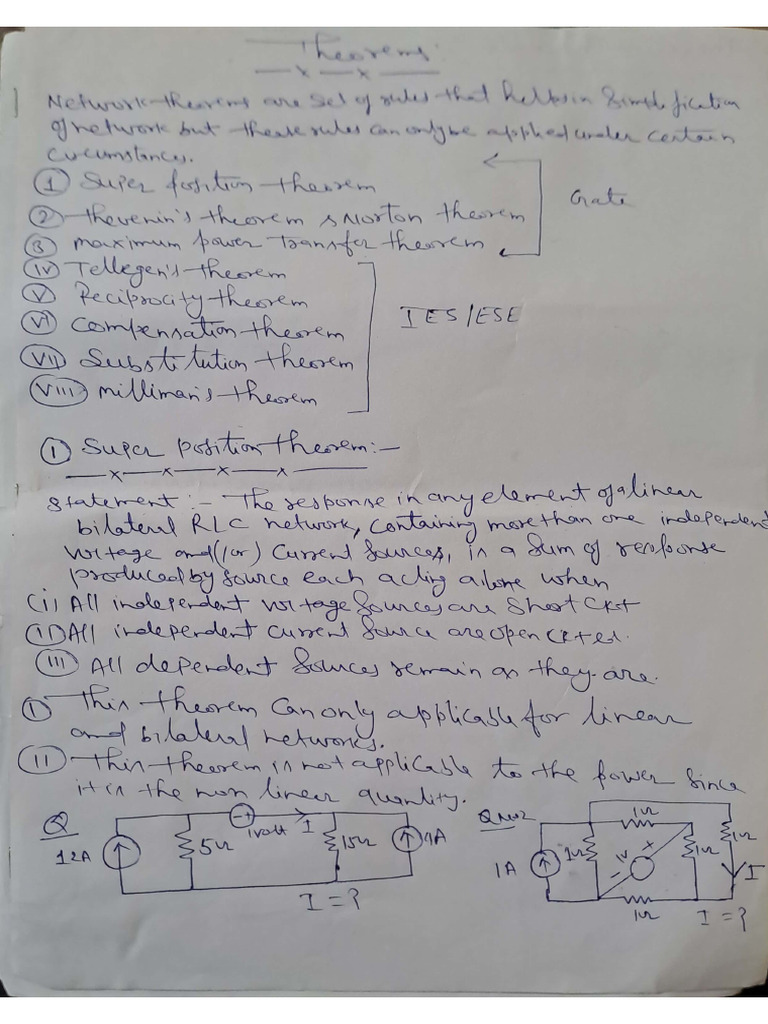 Theorems:
Network theorems are set of rules that helps in Simplification
of network but these rules can only be applied under certain
circumstances.
① Super position theorem
② thevenin's theorem & Norton theorem
③ maximum power Transfer theorem
Gate
iv Tellegen's theorem
v Reciprocity theorem
vi Compensation theorem
VII Substitution theorem
VIII milliman's theorem
IES/ESE
① Super position theorem:-
Statement :- The response in any element of a linear
bilateral RLC network, containing more than one independent
voltage and (/or) current sources, is a sum of response
produced by source each acting alone when
(i) All independent voltage sources are short ckt
(ii) All independent current source are open ckted.
(iii) All dependent sources remain as they are.
① This theorem can only applicable for linear
and bilateral networks.
(II) This theorem is not applicable to the power since
it is the non linear quantity.
Q
12A
5Ω
- +
1volt
I
15Ω
4A
I = ?
Q no2
1A
1Ω
1Ω
- V +
1Ω
1Ω
1Ω
I
I = ?